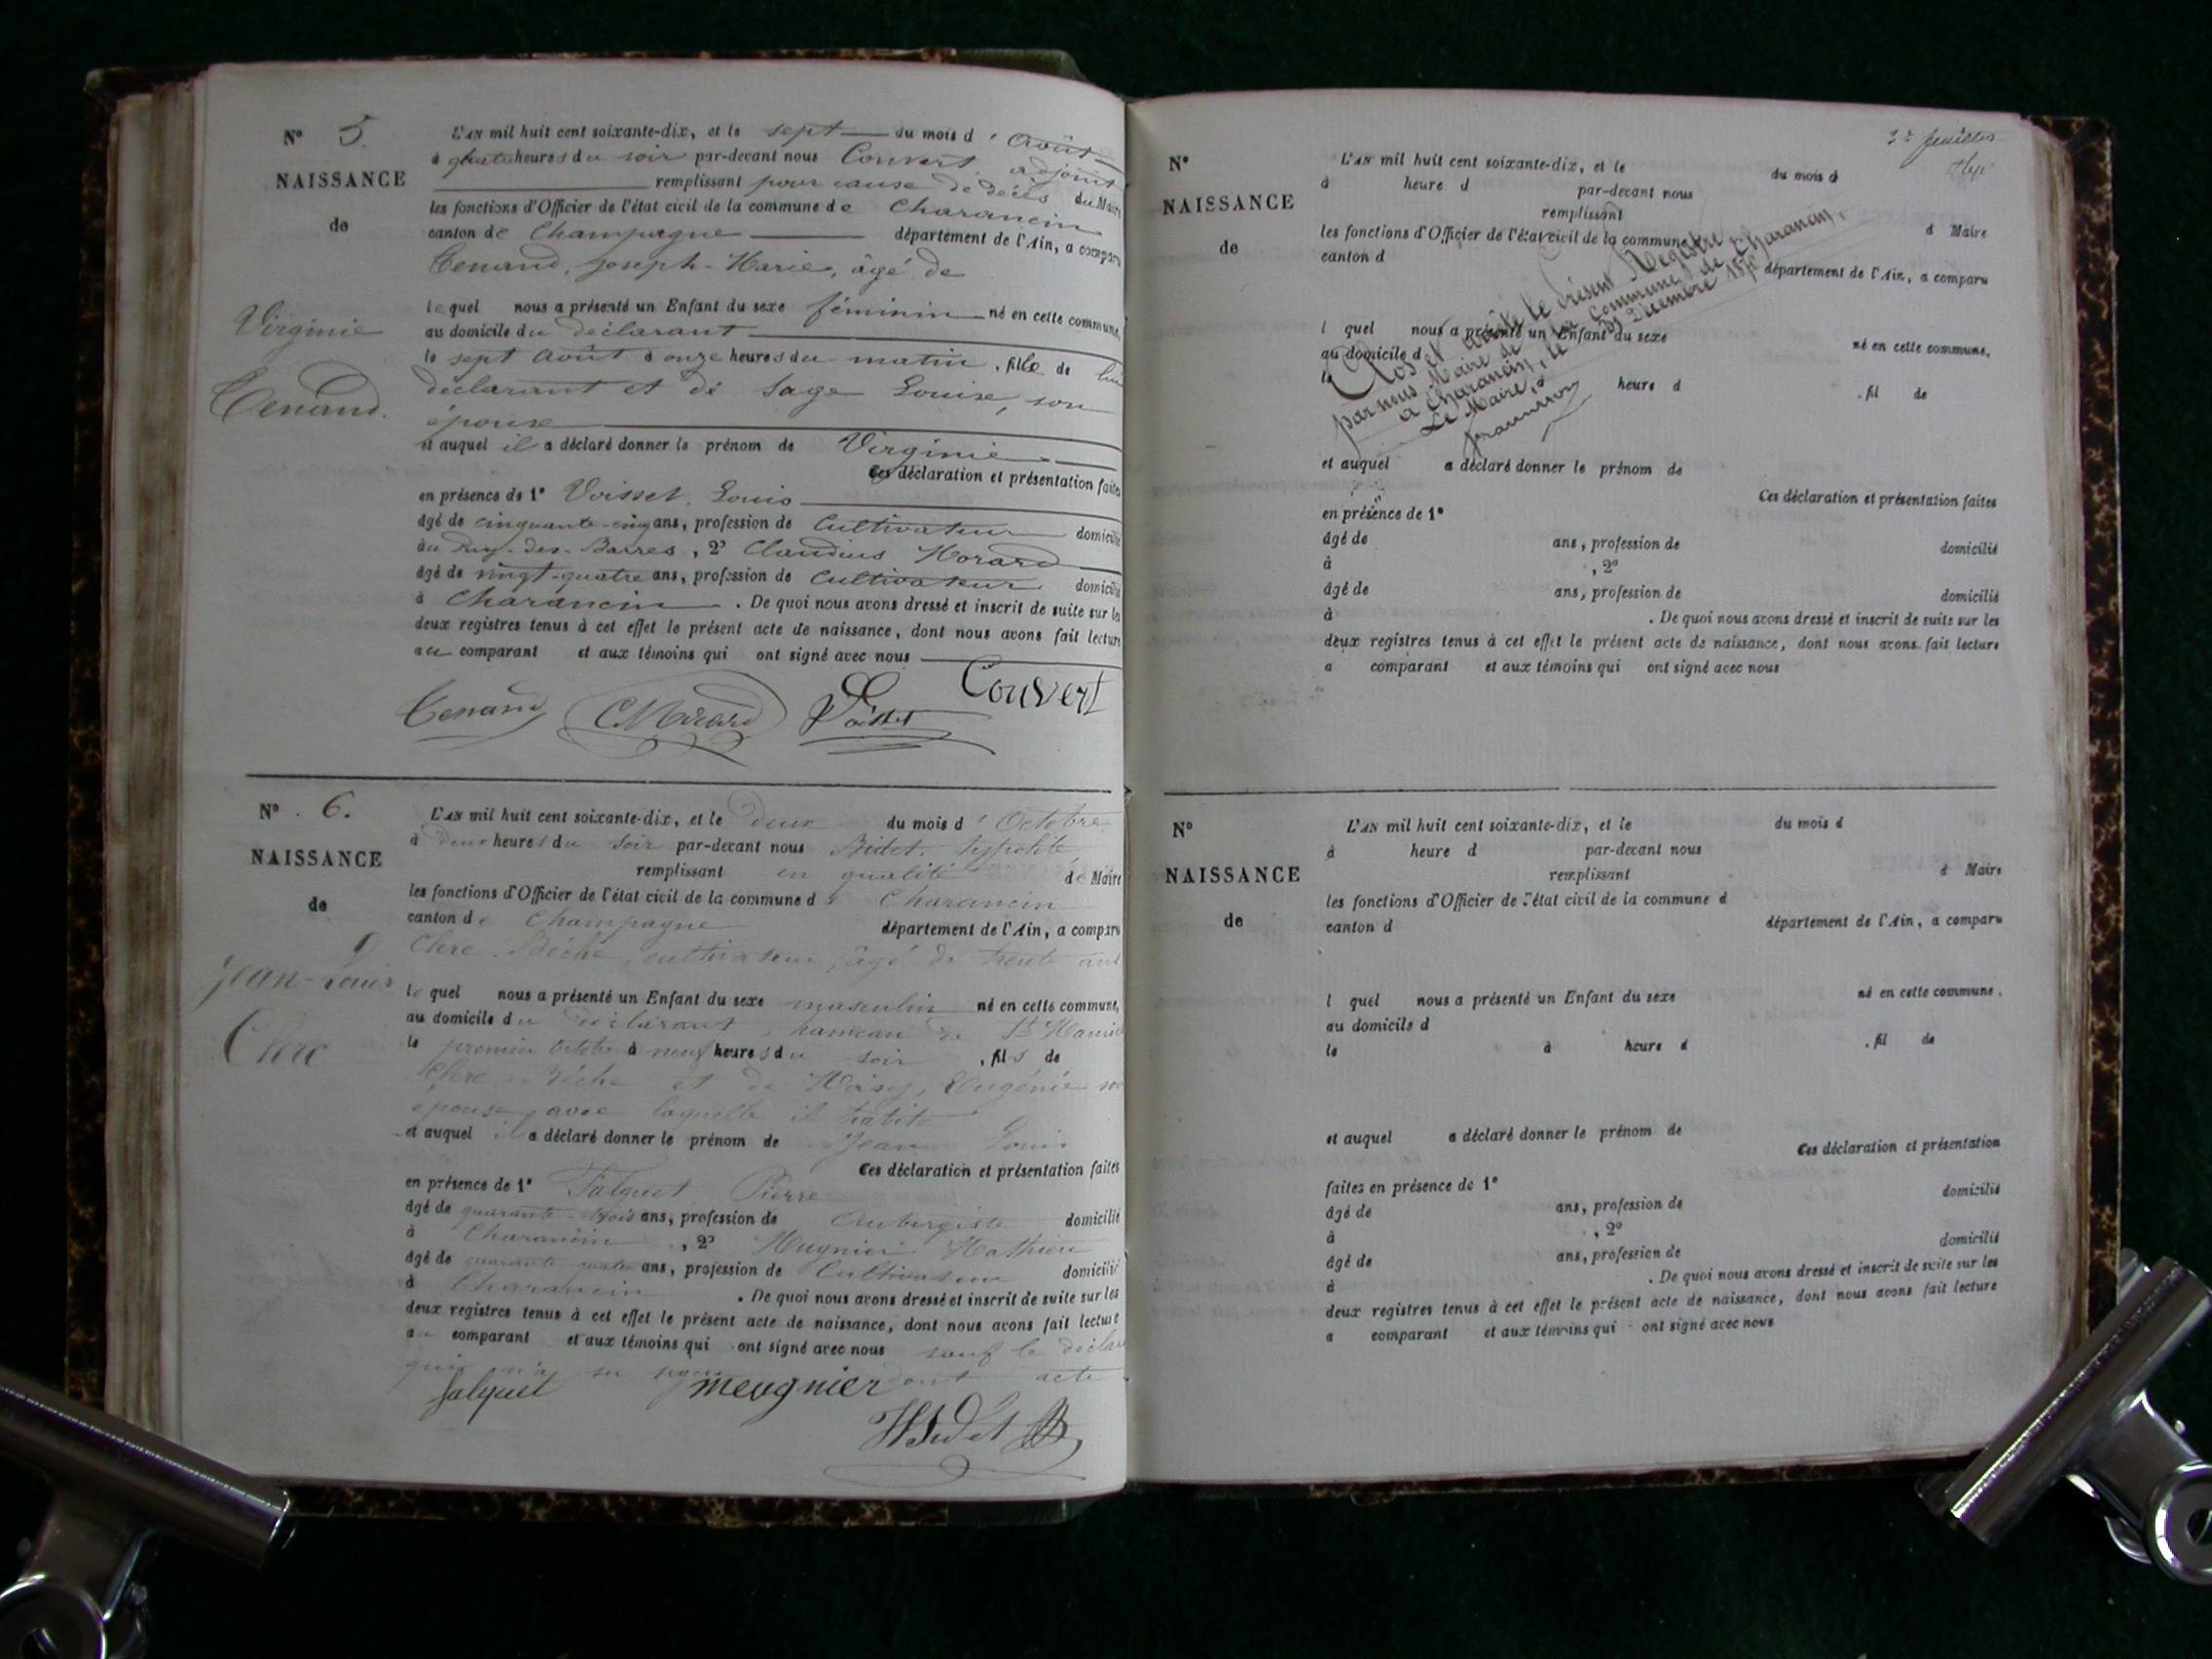 N° 5.
NAISSANCE
de
Virginie
Tenand.
L'AN mil huit cent soixante-dix, et le sept du mois d'Août
à quatre heures du soir par-devant nous Convert adjoint
remplissant pour cause de décès du Maire
les fonctions d'Officier de l'état civil de la commune de Charancin
canton de Champagne département de l'Ain, a comparu
Tenand, Joseph-Marie, âgé de
lequel nous a présenté un Enfant du sexe féminin né en cette commune,
au domicile du déclarant
le sept Août à onze heures du matin, fille de lui
déclarant et de Sage Louise, son
épouse
et auquel il a déclaré donner le prénom de Virginie
Ces déclaration et présentation faites
en présence de 1° Voisset, Louis
âgé de cinquante-cinq ans, profession de Cultivateur domicilié
au Puy-des-Barres, 2° Claudius Morard
âgé de vingt-quatre ans, profession de Cultivateur domicilié
à Charancin. De quoi nous avons dressé et inscrit de suite sur les
deux registres tenus à cet effet le présent acte de naissance, dont nous avons fait lecture
au comparant et aux témoins qui ont signé avec nous
Tenand CMorard Voisset Convert
N° 6.
NAISSANCE
de
Jean-Louis
Clerc
L'AN mil huit cent soixante-dix, et le deux du mois d'Octobre
à deux heures du soir par-devant nous Bidet, hippolite
remplissant en qualité de Maire
les fonctions d'Officier de l'état civil de la commune d Charancin
canton de Champagne département de l'Ain, a comparu
Clerc, cultivateur, âgé de trente ans
lequel nous a présenté un Enfant du sexe masculin né en cette commune,
au domicile du déclarant, hameau de St Mauric
le premier Octobre à neuf heures du soir, fils de
Clerc et de Eugénie son
épouse avec laquelle il habite
et auquel il a déclaré donner le prénom de Jean Louis
Ces déclaration et présentation faites
en présence de 1° Falquet Pierre
âgé de quarante-trois ans, profession de Aubergiste domicilié
à Charancin, 2° Mugnier Mathieu
âgé de quarante ans, profession de Cultivateur domicilié
à Charancin. De quoi nous avons dressé et inscrit de suite sur les
deux registres tenus à cet effet le présent acte de naissance, dont nous avons fait lecture
au comparant et aux témoins qui ont signé avec nous sauf le décla
qui n'a su signer dont acte
falquet meugnier
HBidet
N°
NAISSANCE
de
L'AN mil huit cent soixante-dix, et le du mois d
à heure d par-devant nous
remplissant d Maire
les fonctions d'Officier de l'état civil de la commune d
canton d département de l'Ain, a comparu
Clos et arrêté le présent Registre
par nous Maire de la Commune de Charancin,
à Charancin, le 31 Décembre 1870
Le Maire,
l quel nous a présenté un Enfant du sexe né en cette commune,
au domicile d
le heure d , fil de
et auquel a déclaré donner le prénom de
Ces déclaration et présentation faites
en présence de 1°
âgé de ans, profession de domicilié
à , 2°
âgé de ans, profession de domicilié
à . De quoi nous avons dressé et inscrit de suite sur les
deux registres tenus à cet effet le présent acte de naissance, dont nous avons fait lecture
a comparant et aux témoins qui ont signé avec nous
N°
NAISSANCE
de
L'AN mil huit cent soixante-dix, et le du mois d
à heure d par-devant nous
remplissant d Maire
les fonctions d'Officier de l'état civil de la commune d
canton d département de l'Ain, a comparu
l quel nous a présenté un Enfant du sexe né en cette commune,
au domicile d
le à heure d , fil de
et auquel a déclaré donner le prénom de
Ces déclaration et présentation
faites en présence de 1°
âgé de ans, profession de domicilié
à , 2°
âgé de ans, profession de domicilié
à . De quoi nous avons dressé et inscrit de suite sur les
deux registres tenus à cet effet le présent acte de naissance, dont nous avons fait lecture
a comparant et aux témoins qui ont signé avec nous